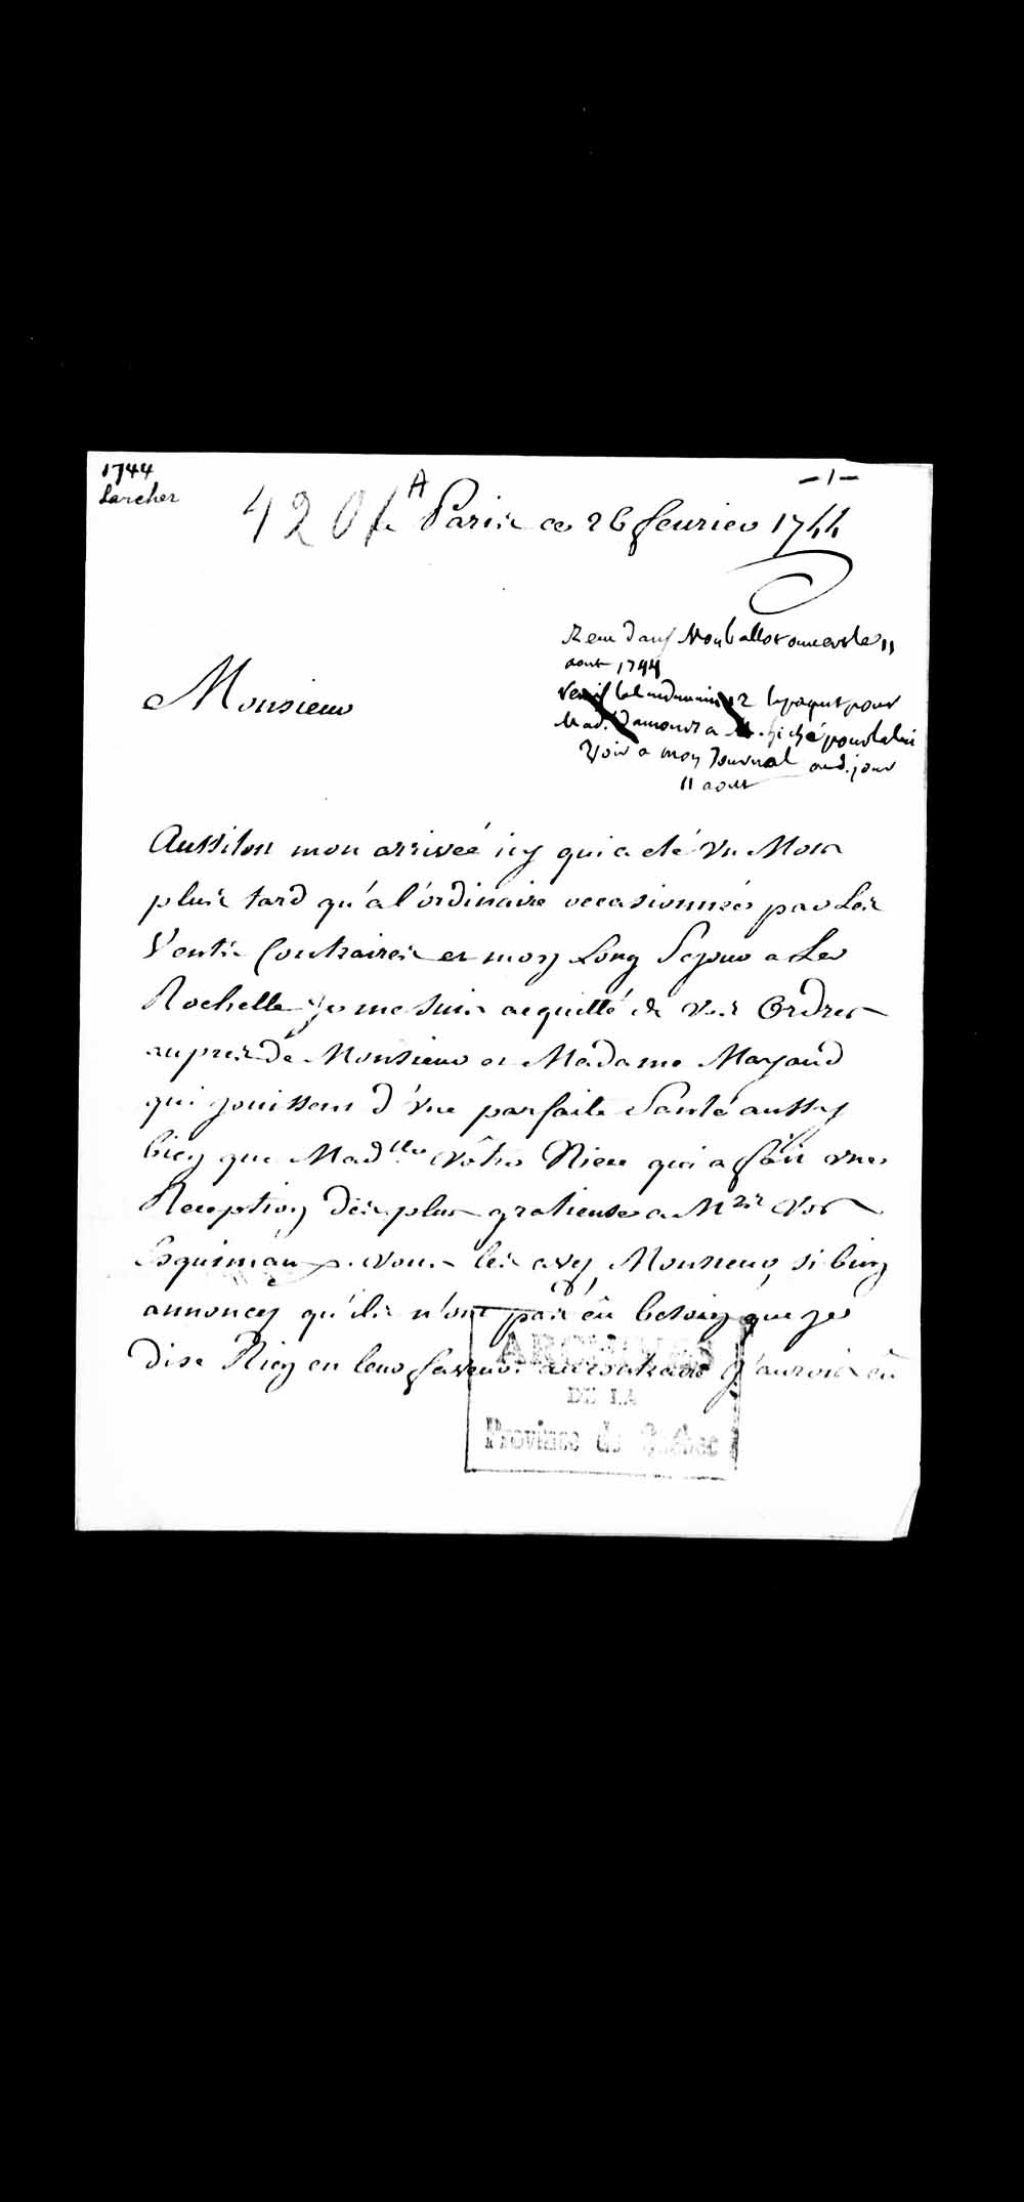 1744
Larcher
-1-
4201
A Paris ce 26 feurier 1744
Monsieur
aout 1744
voir a mon Journal aud. jour
11 aout
Aussitost mon arrivée icy qui a eté vn Mois
plus tard qu'a l'ordinaire occasionnée par Les
Vents Contraires et mon Long Sejour a La
Rochelle je me suis acquitté de vos Ordres
aupres de Monsieur et Madame Mayaud
qui jouissent d'vne parfaite Santé aussy
bien que Mad.lle vôtre Niece qui a fait vne
Reception des plus gratieuse a Mrs vos
Esquimaux. vous les avez Monsieur, si bien
annoncez qu'ils n'ont pas eû besoin que je
dise Rien en leur faveur. au contraire J'aurois eû
ARCHIVES
DE LA
Province de Québec